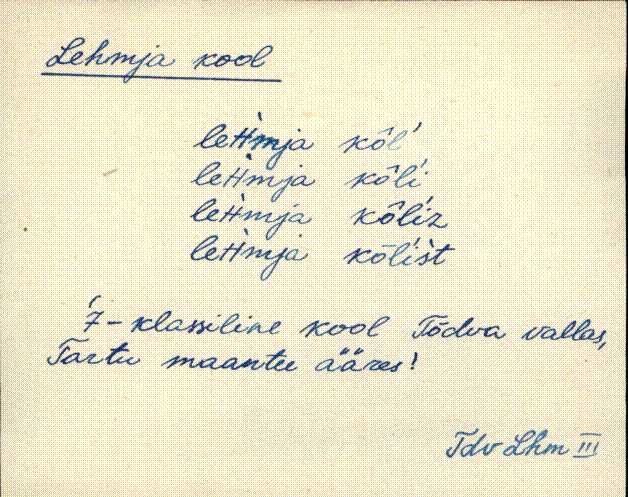 Lehmja kool
leH̀mja kôĺ
leH̀mja kôĺi
leH̀mja kôĺiz
leH̀mja kôĺìst
7-klassiline kool Tõdva vallas,
Tartu maantee ääres!
Tdv Lhm III